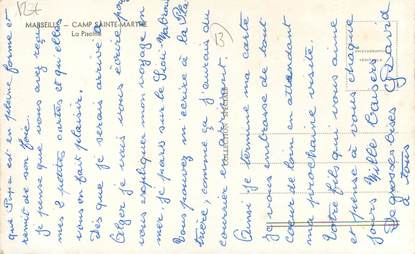 MARSEILLE — CAMP SAINTE-MARTHE
La Piscine
(3)
que Papa est en pleine forme et
remis de son foie.
je pense que vous avez reçu
mes 2 petites cartes et qu'elles
vous on fait plaisir.
Dès que je serais arrivé à
Alger je vais vous écrire pour
vous expliquer mon voyage en
mer. je pars sur le Sidi-Mabrouk
Vous pouvez m'écrire à la Pla
trière, comme ça j'aurais du
courrier en arrivant.
Ainsi je termine ma carte
je vous embrasse de tout
coeur de loin en attendant
ma prochaine visite.
Votre fils qui vous aime
et pense à vous chaque
jours Mille Baisers
De grosses bises
à tous